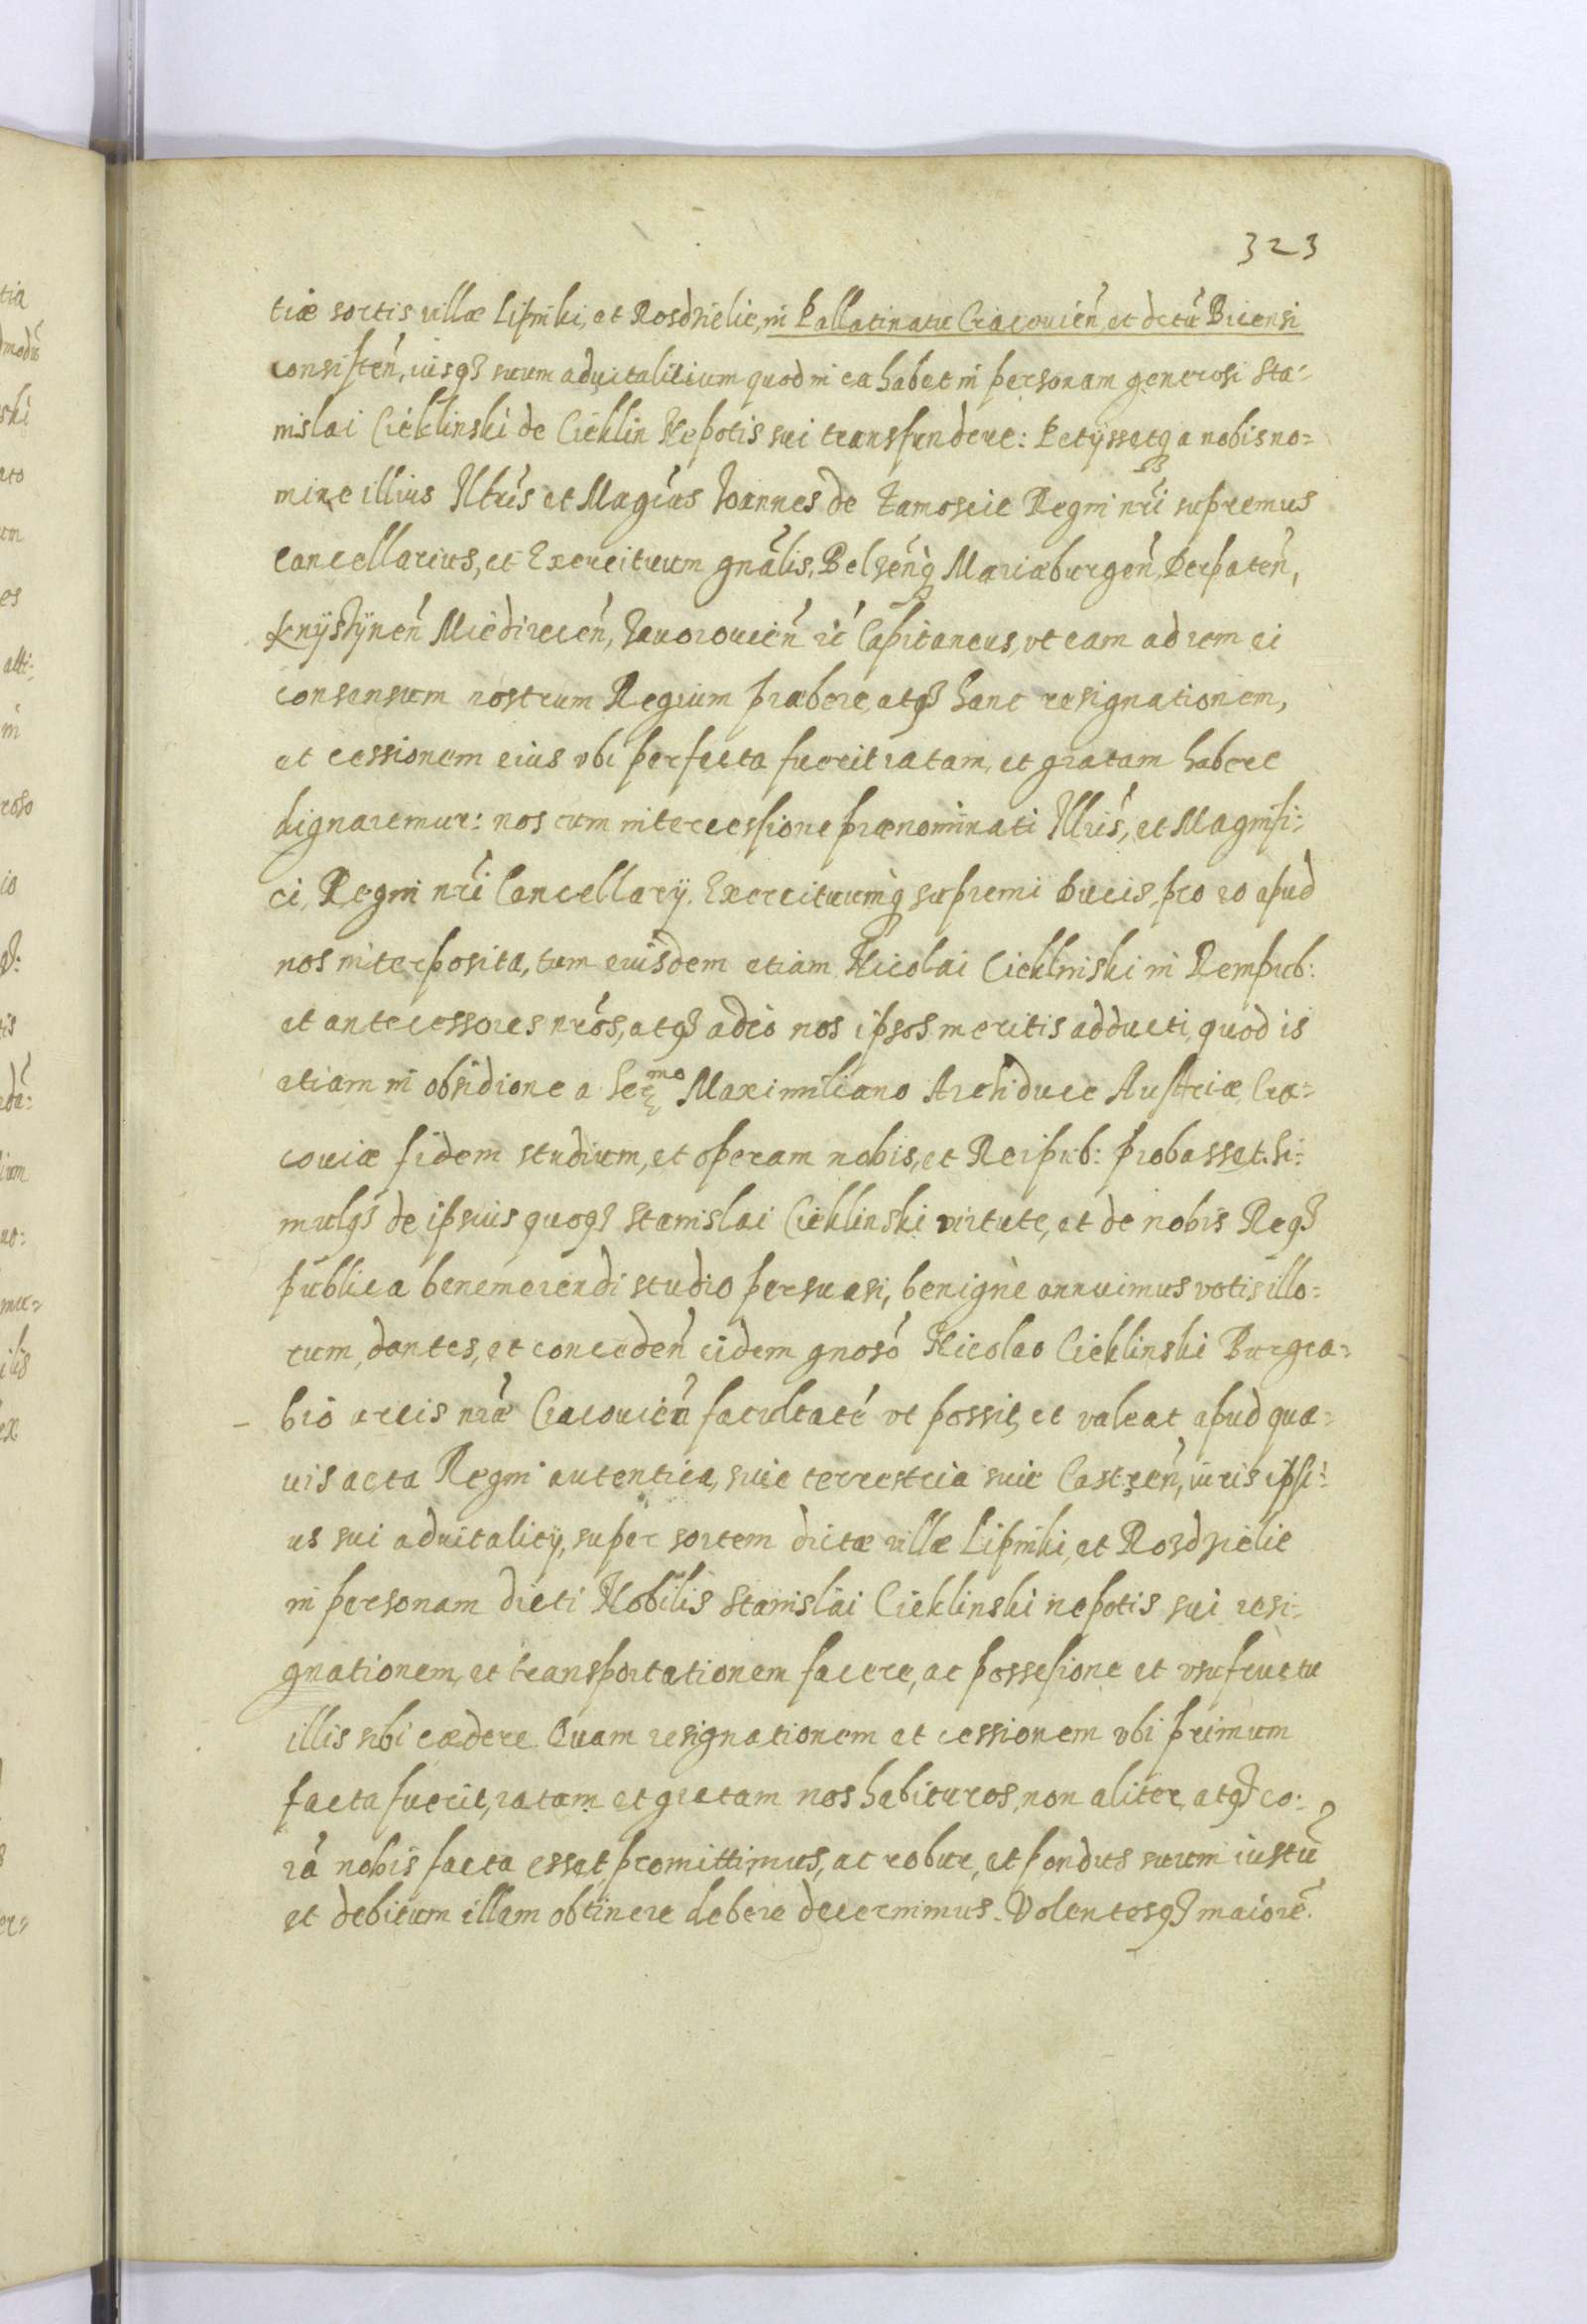 323
tiæ sortis villæ Lipniki, et Rosdzielie, in Pallatinatu Cracouień, et dctũ Bicensi
consisteń, iusq3 suum aduitalitium quod in ea habet in personam generosi Sta-
nislai Cieklinski de Cieklin Nepotis sui transfundere: Petÿssetq3 a nobis no=
mine illius Illris et Magcus Ioannes de Zamoscie Regni nri supremus
Cancellarius, et Exercituum gnãlis, Belseńq3 Mariæburgeń, Derpateń,
Knÿszÿneń Miedireceń, Iauorouień ic Capitaneus, vt eam ad rem ei
consensum nostrum Regium præbere, atq3 hanc resignationem,
et cessionem eius vbi perfecta fuerit ratam, et gratam habere
dignaremur: nos cum intercessione prænominati Illris, et Magnifi:
ci, Regni nri Cancellarÿ, Exercituumq3 supremi Ducis, pro eo apud
nos interposita, tum eiusdem etiam Nicolai Cieklinski in Rempub:
et antecessores nros, atq3 adeo nos ipsos meritis adducti, quod is
etiam in obsidione a Ser mo Maximiliano Archiduce Austriæ, Cra=
couiæ fidem studium, et operam nobis, et Reipub: probasset. Si:
mulq3 de ipsius quoq3 Stanislai Cieklinski virtute, et de nobis Req3
publica benemerendi studio persuasi, benignè annuimus votis illo=
rum, dantes, et concedeń eidem gnoso Nicolao Cieklinski Burgra=
bio arcis nræ Cracouień facultatẽ vt possit, et valeat apud quæ=
uis acta Regni autentica, siue terrestria siue Castreń, iuris ipsi:
us sui aduitalitÿ, super sortem dictæ villæ Lipniki, et Rozdzielie
in personam dicti Nobilis Stanislai Cieklinski nepotis sui resi:
gnationem, et transportationem facere, ac possesione et vsufructu
illis sibi cædere Quam resignationem et cessionem vbi primum
facta fuerit, ratam et gratam nos habituros, non aliter, atq3 co:
rã nobis facta esset, promittimus, ac robur, et pondus suum iustũ
et debitum illam obtinere debere decernimus. Volentesq3 maiorẽ